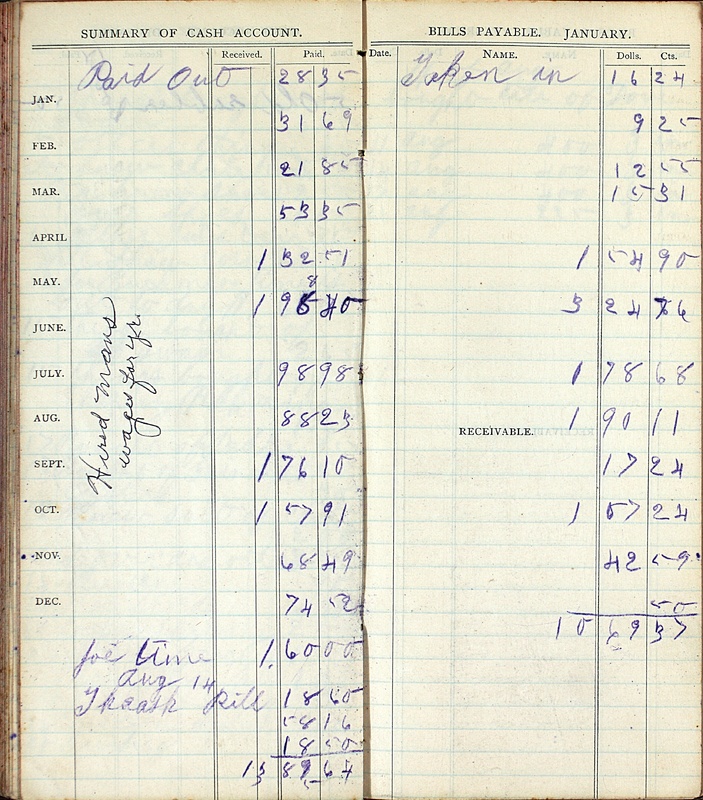 SUMMARY OF CASH ACCOUNT.
Received. Paid.
Paid Out 28 35
JAN.
31 69
FEB.
21 85
MAR.
53 35
APRIL
1 32 51
MAY.
8
1 95 40
JUNE.
Hired mans
wages for yr.
JULY. 98 98
AUG. 88 23
SEPT. 1 76 10
OCT. 1 57 91
NOV. 68 49
DEC. 74 52
Joe time 1 60 00
Aug 14
Thrash Bill 18 60
58 16
18 50
13 89 64
BILLS PAYABLE. JANUARY.
Date. NAME. Dolls. Cts.
Taken in 16 24
9 25
12 55
15 31
1 54 90
3 24 76
1 78 68
1 90 11
RECEIVABLE.
17 24
1 57 24
42 59
50
10 69 37